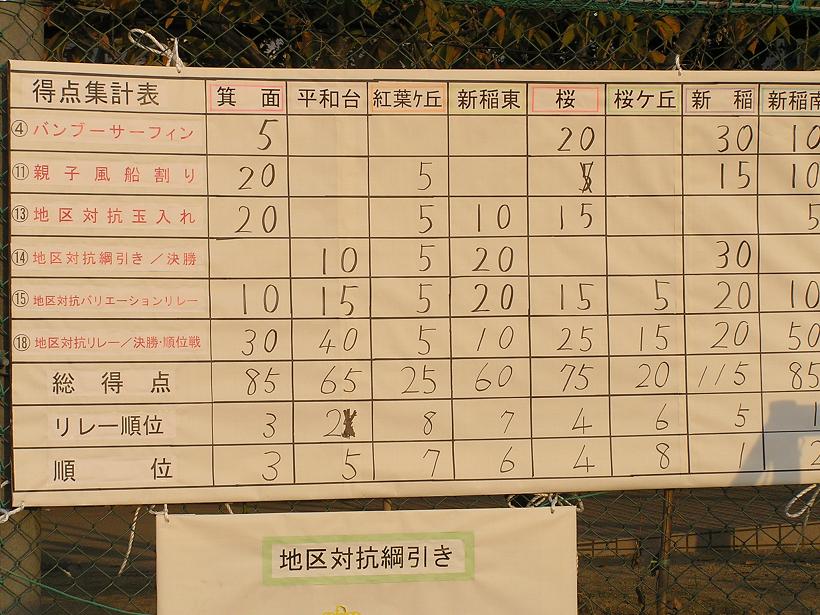 得点集計表 箕面 平和台 紅葉ケ丘 新稲東 桜 桜ケ丘 新稲 新稲南
④ バンブーサーフィン 5 20 30 10
⑪ 親子風船割り 20 5 15 10
⑬ 地区対抗玉入れ 20 5 10 15 5
⑭ 地区対抗綱引き／決勝 10 5 20 30
⑮ 地区対抗バリエーションリレー 10 15 5 20 15 5 20 10
⑱ 地区対抗リレー／決勝・順位戦 30 40 5 10 25 15 20 50
総得点 85 65 25 60 75 20 115 85
リレー順位 3 2 8 7 4 6 5 1
順位 3 5 7 6 4 8 1 2
地区対抗綱引き